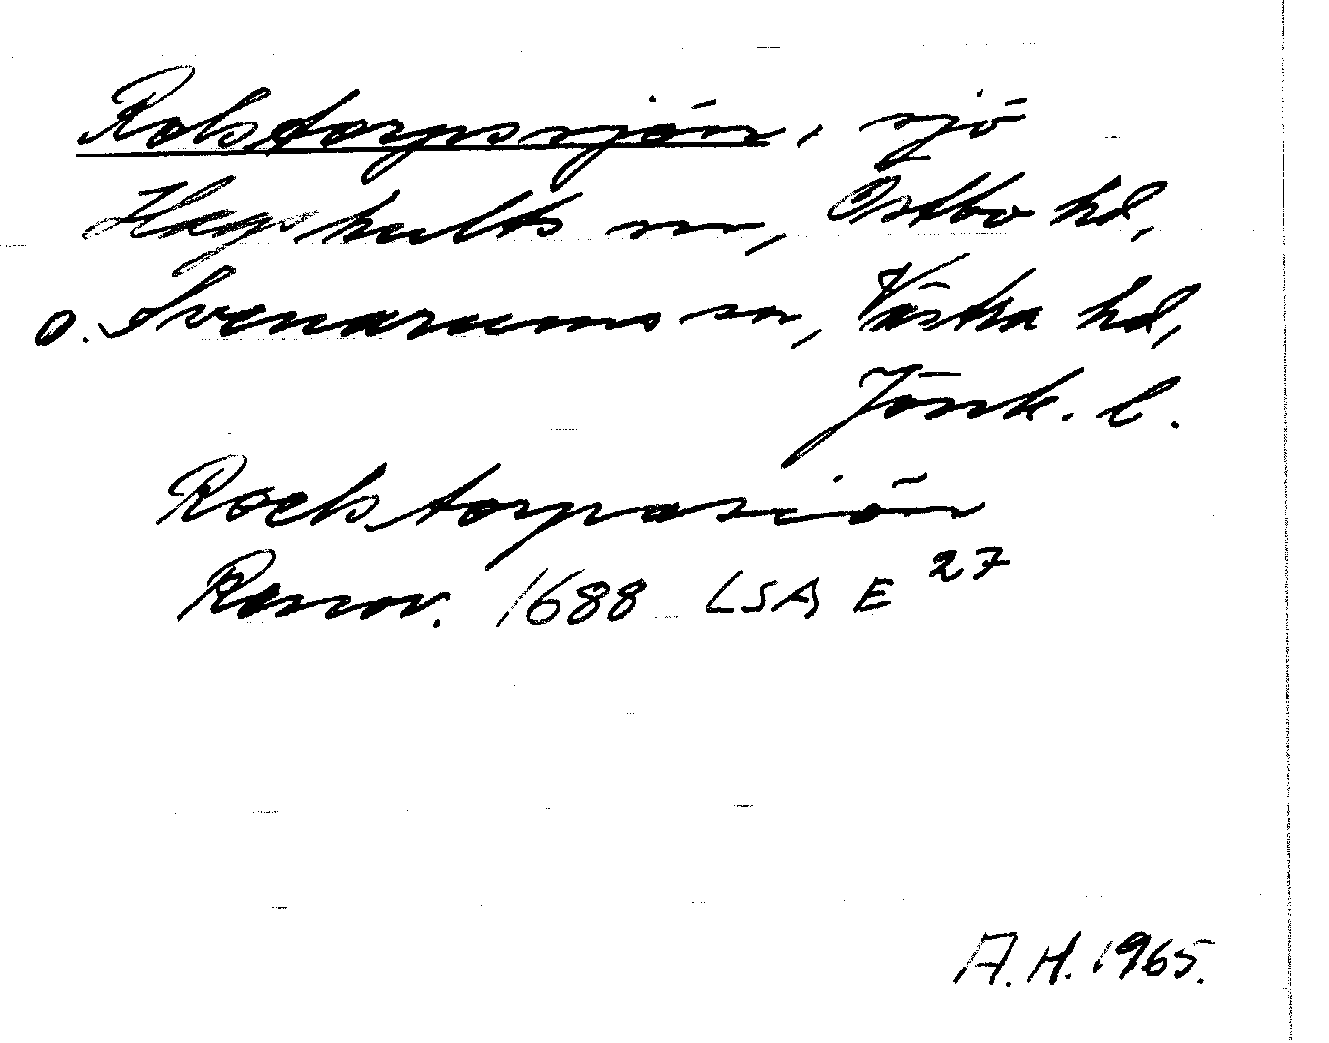 Rokstorpssjön, sjö
Hagshults sn, Östbo hd,
o. Svenarums sn, Västra hd,
Jönk. l.
Rockstorpasiön
Rannov. 1688 LSA E 27
A.H. 1965.